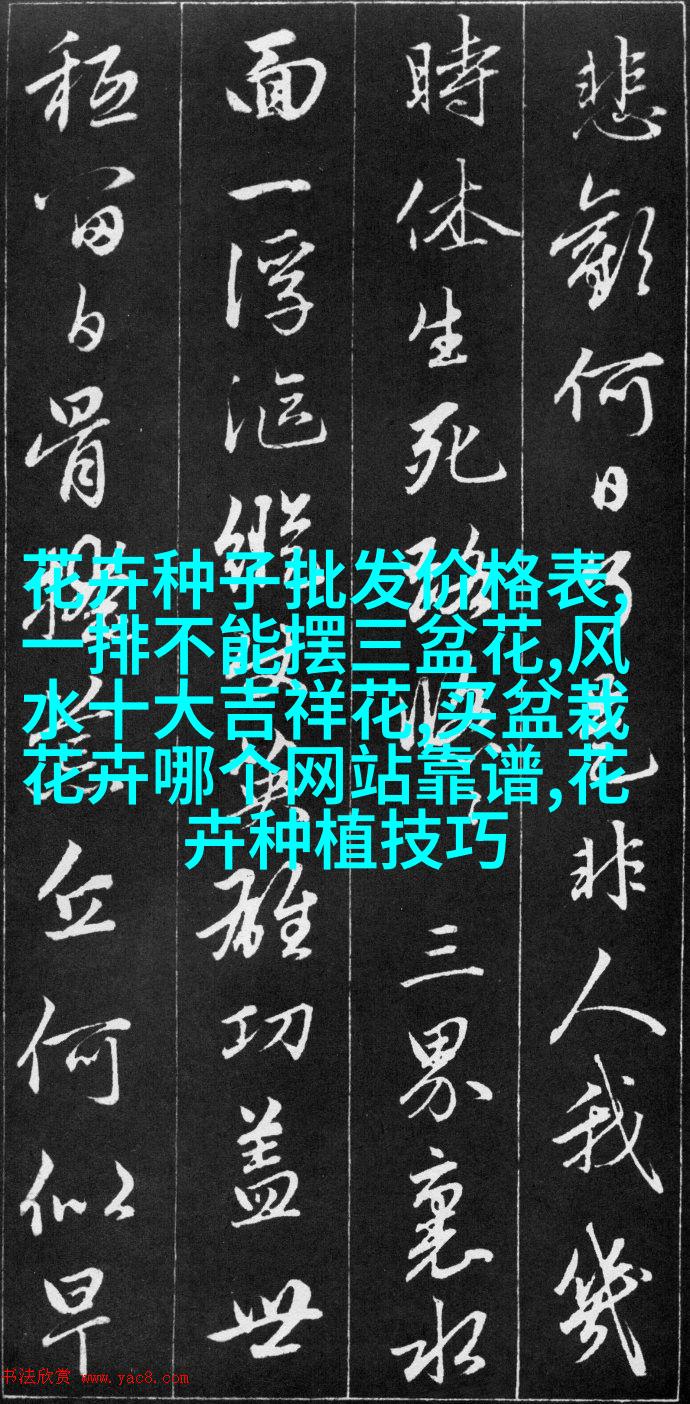 悲歡何日了是非人我幾
時休生死路悠悠三界裏水
面一浮漚縱使英雄功蓋世
秪留白骨丘何似早
花卉种子批发价格表,
一排不能摆三盆花,风
水十大吉祥花,买盆栽
花卉哪个网站靠谱,花
卉种植技巧
书法欣赏 www.yac8.com